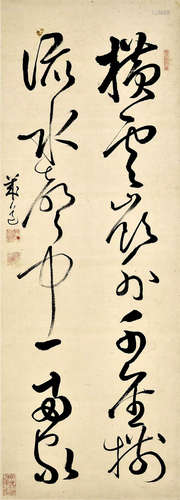 橫雲嶺外千重樹
流水聲中一兩家